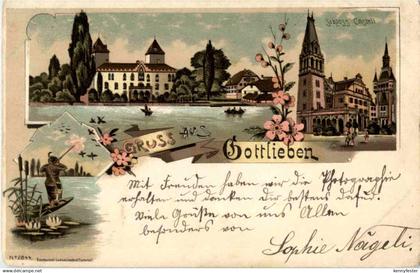 Schloss Castell
Gruss aus
Gottlieben
Mit Freuden haben wir die Photographie
erhalten und danken dir bestens dafür.
Viele Grüsse von uns Allen
besonders von
Sophie Nägeli
https://www.delcampe.net
kennyfester